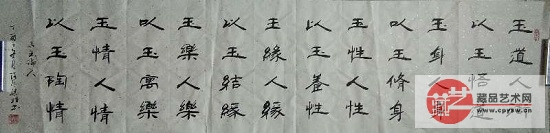 玉道人
以玉悟道
玉身人身
以玉修身
玉性人性
以玉養性
玉緣人緣
以玉結緣
玉樂人樂
以玉寓樂
玉情人情
以玉陶情
丁酉
藏品艺术网
www.cpysw.com